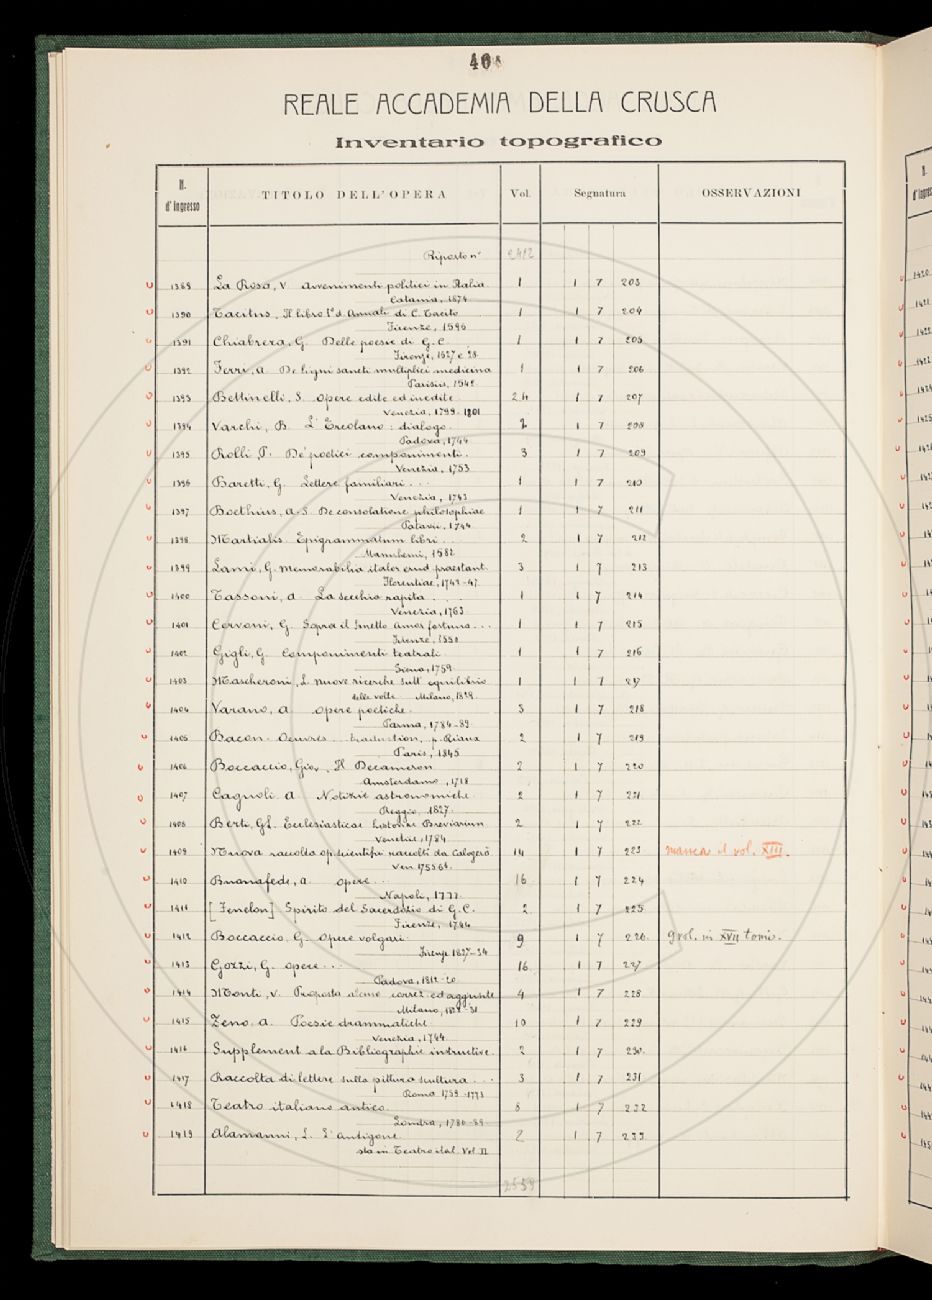 46
REALE ACCADEMIA DELLA CRUSCA
Inventario topografico
N. d'ingresso TITOLO DELL'OPERA Vol. Segnatura OSSERVAZIONI
Riporto nº 2412
1389 La Rosa, V. Avvenimenti politici in Italia 1 1 7 203
Catania, 1874
1390 Tacitus, Il libro 1º d. Annali di C. Tacito 1 1 7 204
Firenze, 1596
1391 Chiabrera, G. Delle poesie di G. C. 1 1 7 205
Firenze, 1627 e 28
1392 Ferri, A. De ligni sancti multiplici medicina 1 1 7 206
Parisiis, 1542
1393 Bettinelli, S. Opere edite ed inedite 24 1 7 207
Venezia, 1799-1801
1394 Varchi, B. L'Ercolano: dialogo. 2 1 7 208
Padova, 1744
1395 Rolli, P. De' poetici componimenti. 3 1 7 209
Venezia, 1753
1396 Baretti, G. Lettere familiari . . . 1 1 7 210
Venezia, 1763
1397 Boethius, A. S. De consolatione philosophiae 1 1 7 211
Patavii, 1744
1398 Martialis Epigrammatum libri . . 2 1 7 212
Mannhemi, 1782
1399 Lami, G. Memorabilia italor. erud. praestant. 3 1 7 213
Florentiae, 1742-47.
1400 Tassoni, A. La secchia rapita . . . 1 1 7 214
Venezia, 1763
1401 Cervoni, G. Sopra il sonetto Amor fortuna . . . 1 1 7 215
Firenze, 1550
1402 Gigli, G. Componimenti teatrali 1 1 7 216
Siena, 1759
1403 Mascheroni, L. Nuove ricerche sull' equilibrio 1 1 7 217
delle volte Milano, 1829.
1404 Varano, A. Opere poetiche. 3 1 7 218
Parma, 1784-89.
1405 Bacon. Oeuvres . . traduction, p. Riaux 2 1 7 219
Paris, 1845
1406 Boccaccio, Giov. Il Decameron 2 1 7 220
Amsterdamo, 1718
1407 Cagnoli. A. Notizie astronomiche. 2 1 7 221
Reggio, 1827.
1408 Berti, G. L. Ecclesiasticae historiae Breviarium 2 1 7 222
Venetiis, 1784
1409 Nuova raccolta op. scientifici raccolti da Calogerà 14 1 7 223 manca il vol. XIII.
Ven. 1755 61.
1410 Buonafede, A. Opere . . . 16 1 7 224
Napoli, 1777
1411 [Fenelon] Spirito del Sacerdozio di G. C. 2 1 7 225
Firenze, 1744
1412 Boccaccio, G. Opere volgari. 9 1 7 226. 9 vol. in XVII tomi.
Firenze 1827-34
1413 Gozzi, G. Opere . . . 16 1 7 227
Padova, 1818-20
1414 Monti, V. Proposta alcune correz. ed aggiunte 4 1 7 228
Milano,
1415 Zeno, A. Poesie drammatiche 10 1 7 229
Venezia, 1744
1416 Supplement a la Bibliographie instructive. 2 1 7 230.
1417 Raccolta di lettere sulla pittura scultura . . . 3 1 7 231
Roma 1759-1773
1418 Teatro italiano antico. 8 1 7 232
Londra, 1786-89
1419 Alamanni, L. L'Antigone. 2 1 7 233
sta in Teatro ital. Vol. II
2559